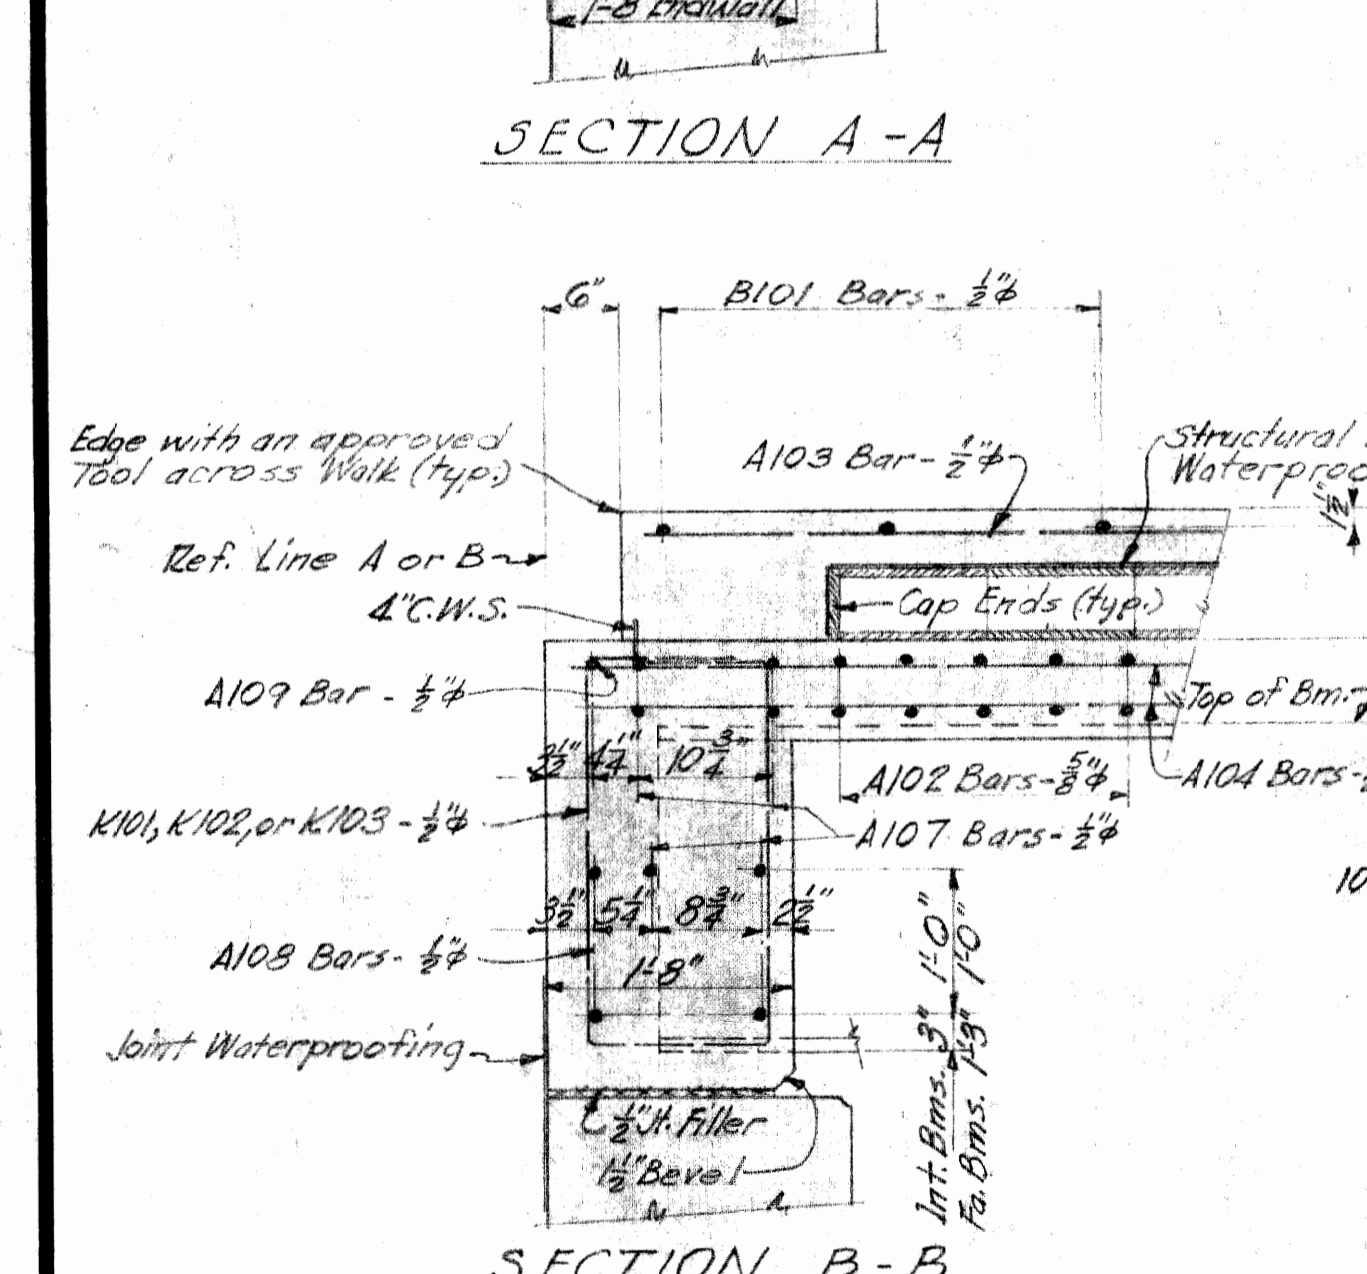 1'-8 Endwall
SECTION A-A
6"
B101 Bars - ½"φ
Edge with an approved
Tool across Walk (typ.)
A103 Bar - ½"φ
Structural
Waterproo
1½"
Ref. Line A or B
4" C.W.S.
Cap Ends (typ.)
A109 Bar - ½"φ
Top of Bm.
4¼" 10¾"
A102 Bars - ⅝"φ
A104 Bars -
K101, K102, or K103 - ½"φ
A107 Bars - ½"φ
10
3½" 5¼" 8¾" 2½"
A108 Bars - ½"φ
1'-8"
Joint Waterproofing
Int. Bms. 3" 1'-0"
Fa. Bms. 1'-3" 1'-0"
½" Jt. Filler
1½" Bevel
SECTION B-B